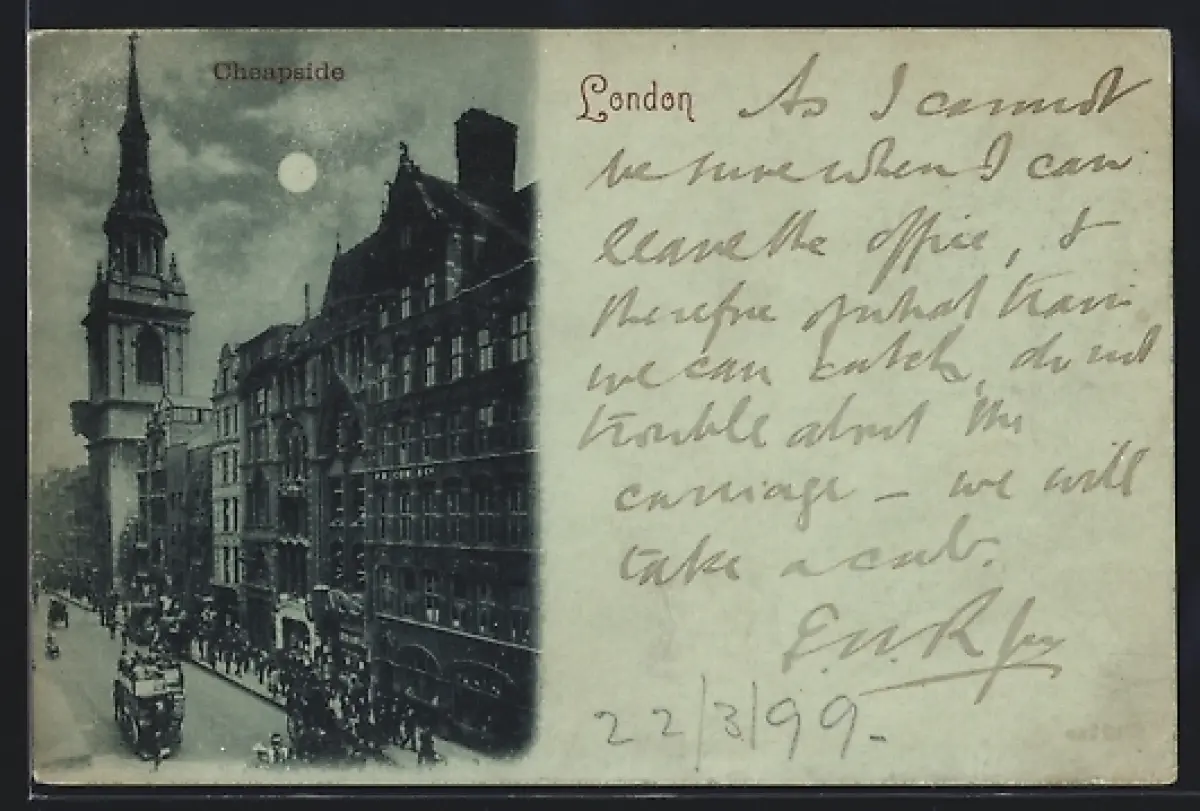 Cheapside
London
As I cannot
be sure when I can
leave the office, &
therefore of what train
we can catch, do not
trouble about the
carriage – we will
take a cab.
E.W.R. Jr
22/3/99.-